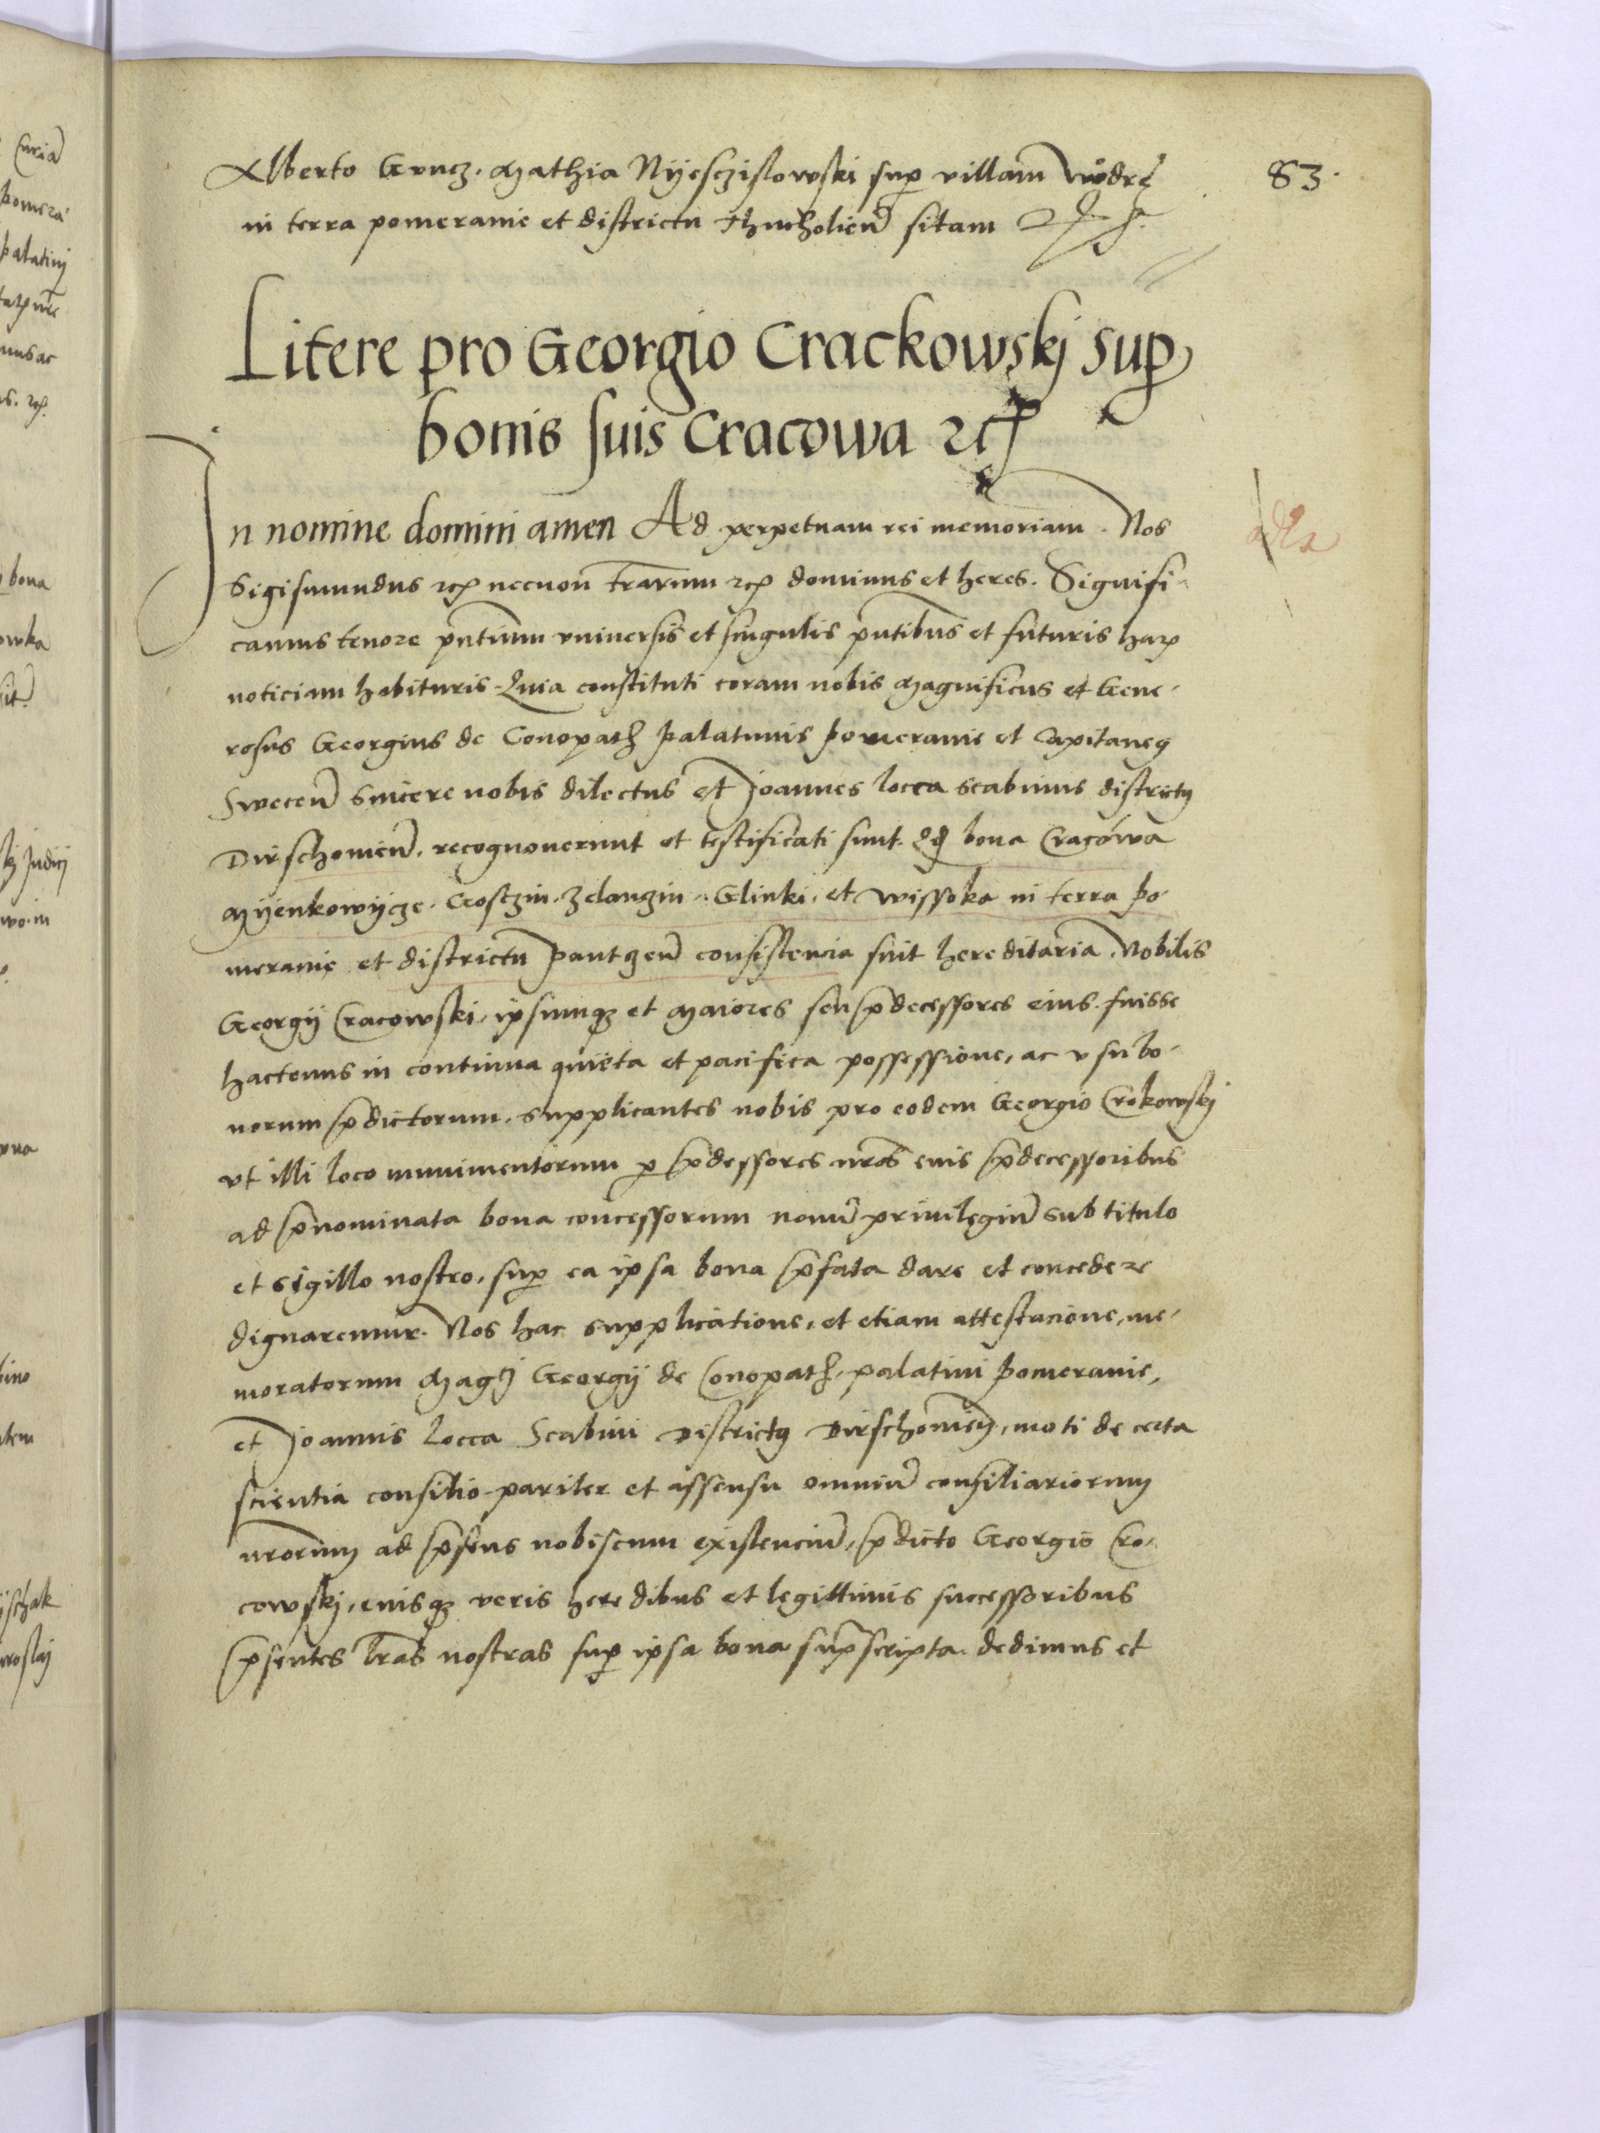 83.
Alberto Grucz. Mathia Nyesczislowski sup villam Wodre
in terra pomeranie et districtu thucholien sitam
Litere pro Georgio Crackowskj sup
bonis suis Cracowa rcꝭ
In nomine domini amen Ad perpetuam rei memoriam. Nos
Sigismundus rcꝭ necnon trarum rcꝭ dominus et heres. Signifi-
camus tenore pntium vniversis et singulis pntibus et futuris harꝫ
noticiam habituris. Quia constituti coram nobis Magnificus et Gene-
rosus Georgius de Conopath palatinus pomeranie et Capitaneꝰ
Swecen sincere nobis dilectus et Joannes locca scabinus districtꝰ
Dirschouien. recognouerunt et testificati sunt. Qd bona Cracowa
Myenkowycze. Costzin. Zelanzin. Glinki. et Wissoka in terra po-
meranie et districtu pantzen consistencia sint hereditaria. Nobilis
Georgij Cracowski, ipsumqꝫ et Maiores seu pdecessores eius. fuisse
hactenus in continua quieta et pacifica possessione, ac vsu bo-
norum pdictorum. supplicantes nobis pro eodem Georgio Crokowskj
vt illi loco munimentorum p pdessores nros suis pdecessoribus
ad pnominata bona concessorum nouu priuilegiu sub titulo
et sigillo nostro, sup ea ipsa bona pfata dare et concedere
dignaremur. Nos hac supplicatione, et etiam attestacione, me-
moratorum Magci Georgij de Conopath, palatini pomeranie,
et Joannis locca Scabini Districtꝰ Dirschouien, moti de certa
scientia consilio pariter et assensu omniu consiliariorum
nrorum ad psens nobiscum existenciu, pdicto Georgio Cro-
cowskj, eiusqꝫ veris heredibus et legittimis successoribus
psentes lras nostras sup ipsa bona suprscripta. dedimus et